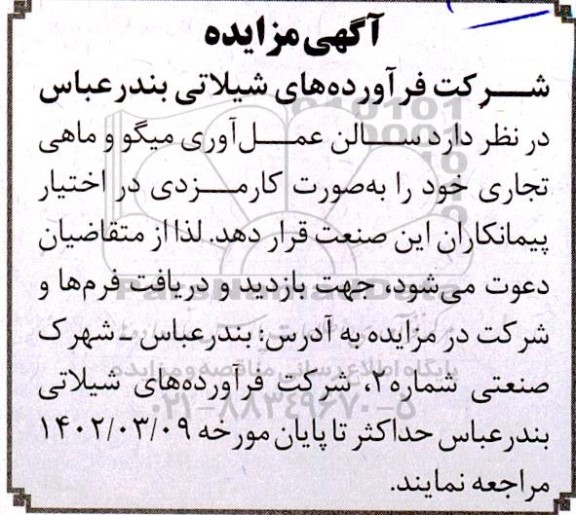 آگهی مزایده
شرکت فرآورده‌های شیلاتی بندرعباس
در نظر دارد سالن عمل‌آوری میگو و ماهی
تجاری خود را به‌صورت کارمزدی در اختیار
پیمانکاران این صنعت قرار دهد. لذا از متقاضیان
دعوت می‌شود، جهت بازدید و دریافت فرم‌ها و
شرکت در مزایده به آدرس: بندرعباس ـ شهرک
صنعتی شماره۲، شرکت فرآورده‌های شیلاتی
بندرعباس حداکثر تا پایان مورخه ۱۴۰۲/۰۳/۰۹
مراجعه نمایند.
پایگاه اطلاع رسانی مناقصه و مزایده
۰۲۱-۸۸۳۴۹۶۷۰-۵